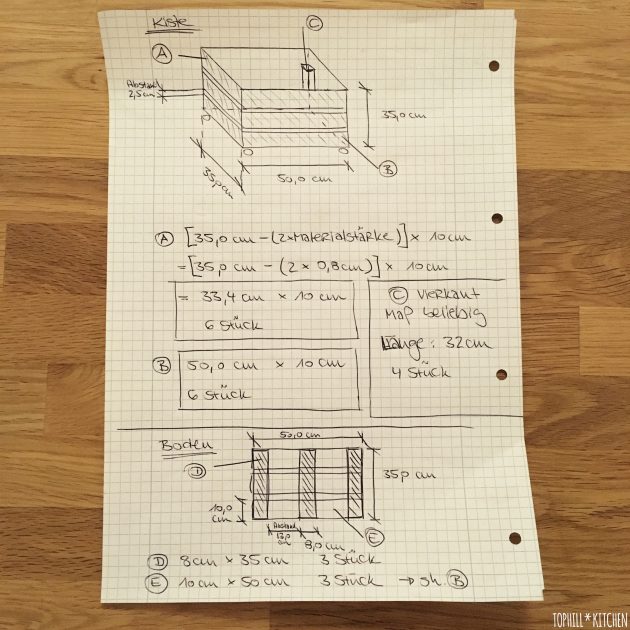 Kiste
C
A
Abstand
2,5cm
35,0 cm
B
35,0 cm
50,0 cm
A [35,0 cm - (2×Materialstärke)] × 10cm
= [35,0 cm - (2 × 0,8cm)] × 10cm
= 33,4 cm × 10 cm
6 Stück
C Vierkant
Maß beliebig
Länge: 32cm
4 Stück
B 50,0 cm × 10cm
6 Stück
Boden
50,0 cm
D
35,0 cm
10,0
cm
Abstand
13,0
cm
8,0cm
E
D 8cm × 35cm 3 Stück
E 10cm × 50cm 3 Stück → sh. B
TOPHILL*KITCHEN